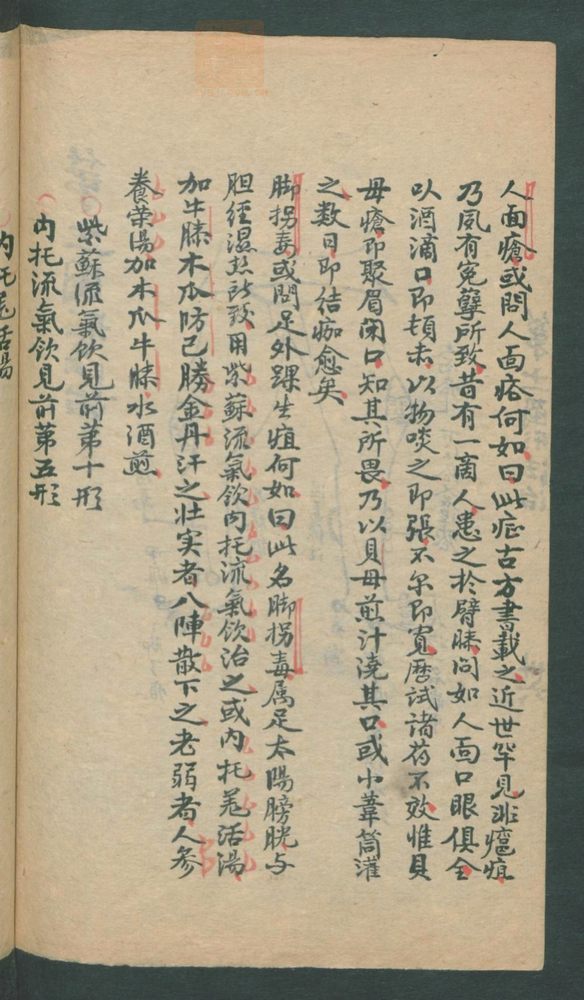 人面瘡或問人面瘡何如曰此症古方書載之近世罕見非癰疽
乃夙有冤孽所致昔有一商人患之於臂膝间如人面口眼俱全
以酒滴口即頳赤以物啖之即張不尔即寬歷試諸药不效惟貝
母瘡即聚眉闭口知其所畏乃以貝母煎汁澆其口或小葦筒灌
之数日即结痂愈矣
脚拐毒或問足外踝生疽何如曰此名脚拐毒属足太陽膀胱与
胆经湿热所致用紫蘇流氣飲内托流氣飲治之或内托羌活湯
加牛膝木瓜防己勝金丹汗之壮实者八陣散下之老弱者人参
養荣湯加木瓜牛膝水酒煎
紫蘇流氣飲見前第十形
内托流氣飲見前第五形
内托羌活湯